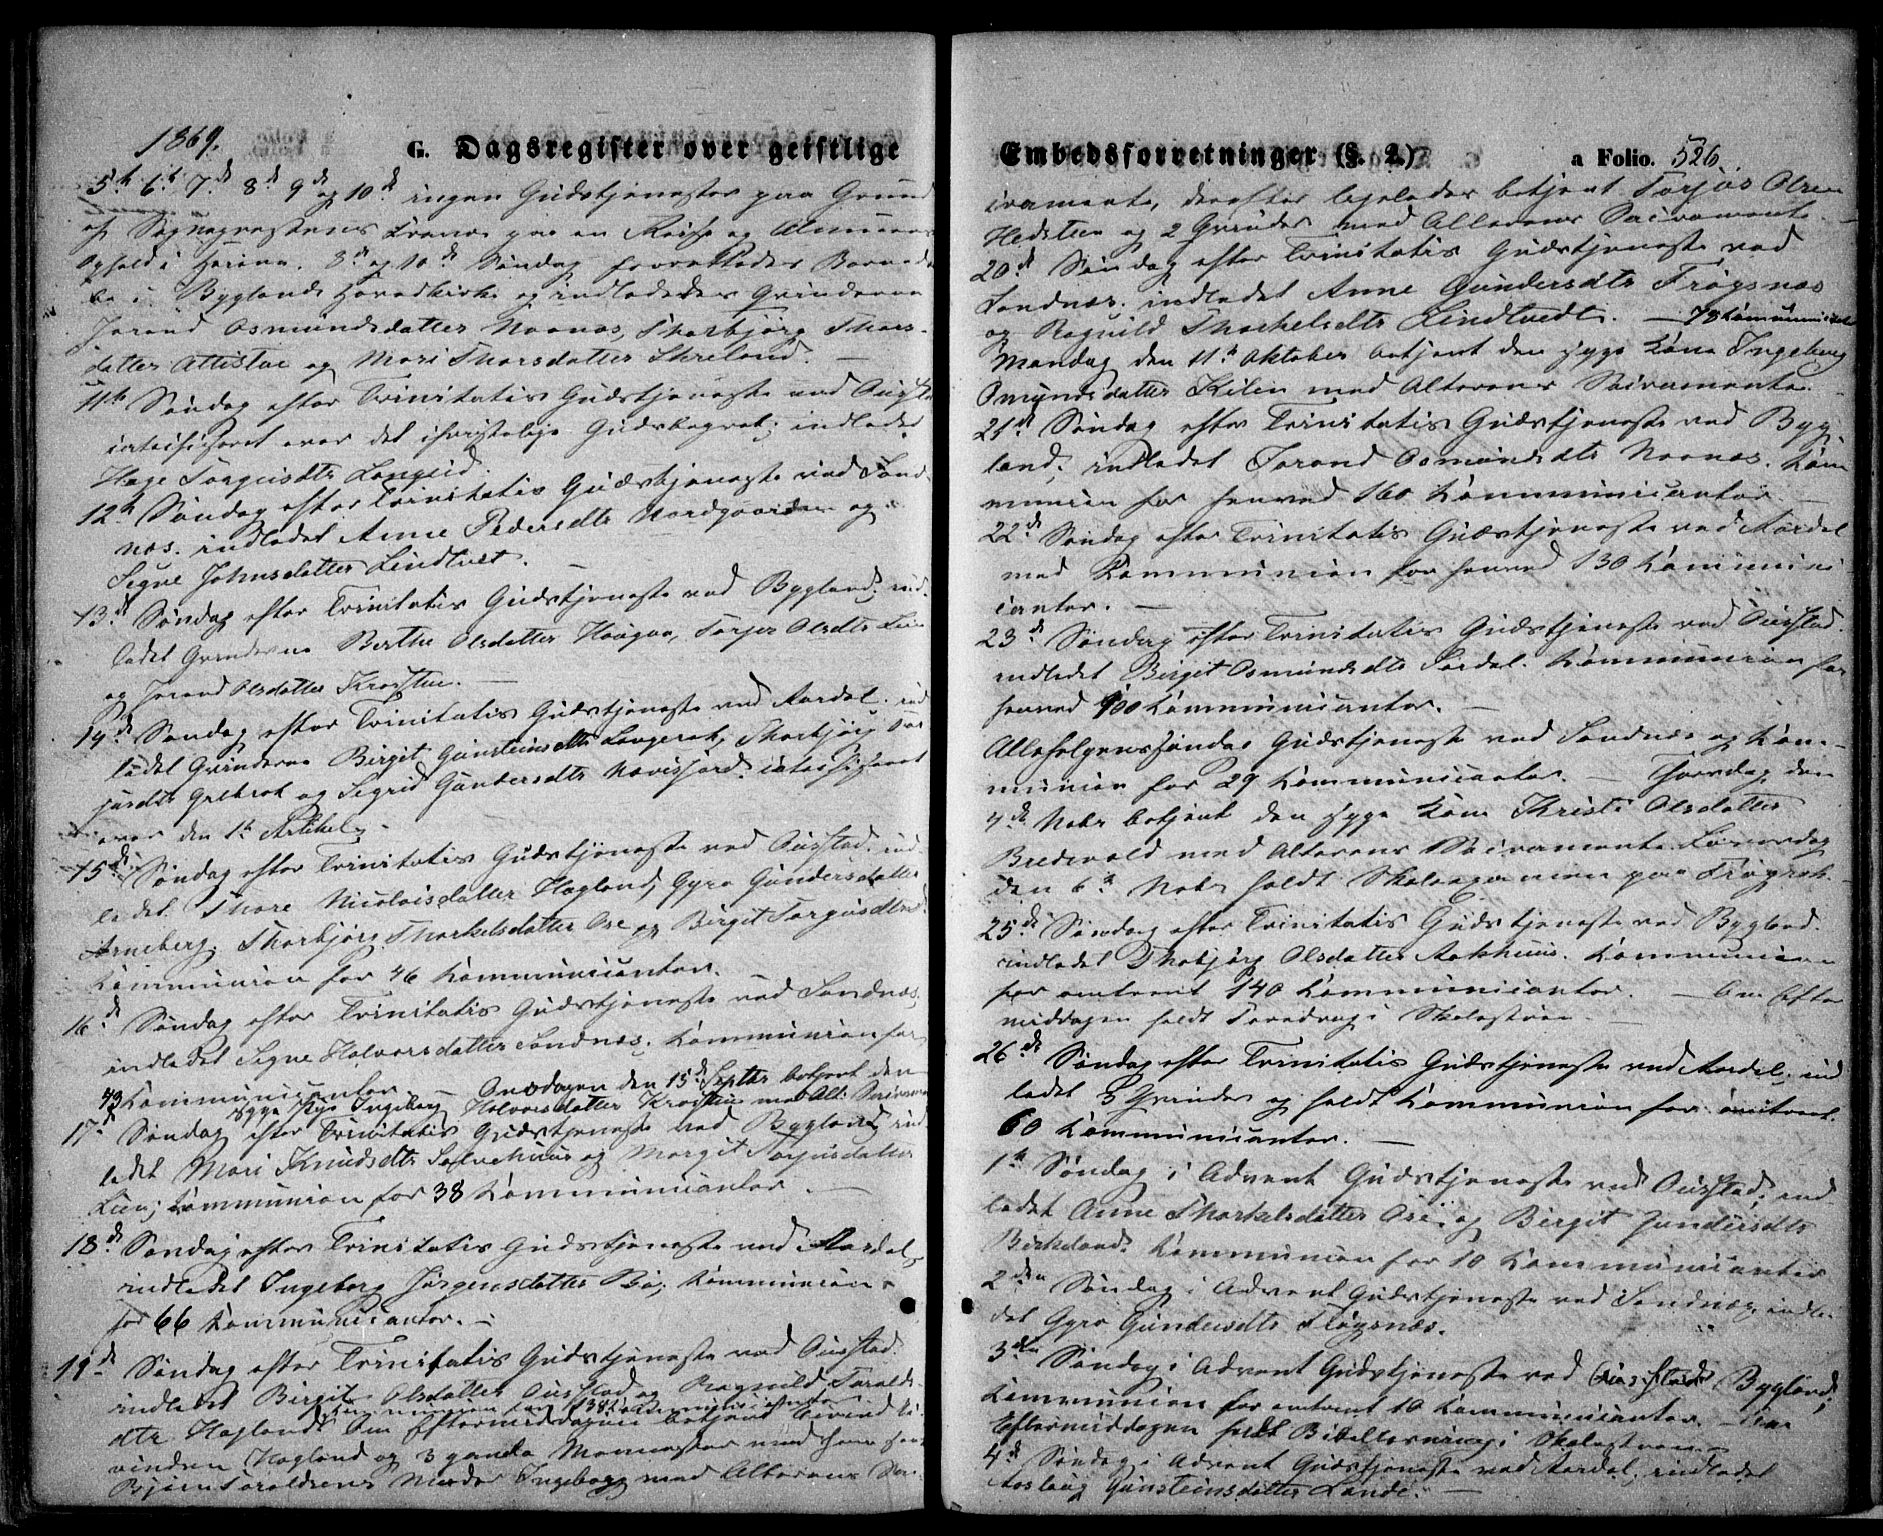 1869.
G. Dagsregister over geistlige
5te 6te 7de 8de 9de og 10de ingen Gudstjeneste paa Grund
af Sognepræstens Fravær paa en Reise og Almuens
Ophold i Heiene. 8de og 10de Søndag forrettedes Barnedaa-
be i Byglands Hovedkirke og indlededes Qvinderne
Jorand Osmundsdatter Noenæs, Thorbjørg Thors-
datter Attistae og Mari Thorsdatter Skreland. —
11te Søndag efter Trinitatis Gudstjeneste ved Austad
catechiseret over det christelige Gudsbegreb; indledet
Hage Torgeisdtr Longeid.
12te Søndag efter Trinitatis Gudstjeneste ved Sand-
næs. indledet Anne Pedersdtr Nordgaarden og
Signe Johnsdatter Lindtvet.
13de Søndag efter Trinitatis Gudstjeneste ved Bygland. ind-
ledet Qvinderne Berthe Olsdatter Haagaa, Torjer Olsdtr Lien
og Jorand Olsdatter Krastue. —
14de Søndag efter Trinitatis Gudstjeneste ved Aardal. ind
ledet Qvinderne Birgit Gunsteinsdtr Langerak, Thorbjørg Tor
jusdtr Grebrok og Sigrid Gundersdtr Novisfjord. catechiseret
over den 1te Artikel. —
15de Søndag efter Trinitatis Gudstjeneste ved Austad. ind-
ledet Thore Nicolaisdatter Hagland, Gyro Gundersdatter
Arneberg, Thorbjørg Thorkelsdatter Ose og Birgit Torgusdtr
Kommunion for 46 Kommunicanter.
16de Søndag efter Trinitatis Gudstjeneste ved Sandnæs,
indledet Signe Halvorsdatter Sandnæs. Kommunion for
43 Kommunicanter — Onsdagen den 15de Septbr betjent den
syge Pige Ingeborg Halvorsdatter Kraistue med Alt: Sacramen
17de Søndag efter Trinitatis Gudstjeneste ved Bygland, ind
ledet Mari Knudsdtr Sølvehuus og Margit Torjusdatter
Lien; Kommunion for 38 Kommunicanter. —
18de Søndag efter Trinitatis Gudstjeneste ved Aardal,
indledet Ingeborg Jørgensdatter Bø; Kommunion
for 66 Kommunicanter. —
19de Søndag efter Trinitatis Gudstjeneste ved Austad.
indledet Birgit Olsdatter Austad og Ragnild Toralds-
Kommunion for 138 Kommunicanter
dtr Hagland. Om Eftermiddagen betjent Eivind Ei
vinden Hagland og 3 gamle Mennesker med ham samt
Bjørn Taraldsens Moder Ingeborg med Alterens Sa-
Embedsforretninger (§. 2.)
a Folio. 526.
cramente, derefter ligeledes betjent Torjus Olsen
Hedsteen og 2 Qvinder med Alterens Sacramente. —
20de Søndag efter Trinitatis Gudstjeneste ved
Sandnæs. indledet Anne Gundersdtr Frøysnæs
og Ragnild Thorkelsdtr Lindtvedt. — 78 Kommunicanter
Mandag den 11te Oktober betjent den syge Kone Ingeborg
Omundsdatter Kilen med Alterens Sacramente. —
21de Søndag efter Trinitatis Gudstjeneste ved Byg-
land; indledet Jorand Osmundsdtr Noenæs. Kom
munion for henved 160 Kommunicanter —
22de Søndag efter Trinitatis Gudstjeneste ved Aardal
med Kommunion for henved 130 Kommuni
canter. —
23de Søndag efter Trinitatis Gudstjeneste ved Austad.
indledet Birgit Osmundsdtr Sordal. Kommunion for
henved 900 Kommunicanter. —
Allehelgenssøndag Gudstjeneste ved Sandnæs og Kom-
munion for 29 Kommunicanter. — Thorsdag den
4de Nobr betjent den syge Kone Kristi Olsdatter
Bredevold med Alterens Sacramente. Løverdag
den 6te Nobr holdt Skoleexamen paa Frøysok.
25de Søndag efter Trinitatis Gudstjeneste ved Bygland.
indledet Thobjørg Olsdatter Aakhuus. Kommunion
for omtrent 140 Kommunicanter. — Om Efter
middagen holdt Foredrag i Skolestuen. —
26de Søndag efter Trinitatis Gudstjeneste ved Aardal; ind
ledet 3 Qvinder og holdt Kommunion for omtrent
60 Kommunicanter. —
1te Søndag i Advent Gudstjeneste ved Austad; ind
ledet Anne Thorkelsdatter Ose og Birgit Gundersdtr
Birkeland. Kommunion for 10 Kommunicanter
2den Søndag i Advent Gudstjeneste ved Sandnæs, indle-
det Gyro Gundersdtr Frøysnæs.
3die Søndag i Advent Gudstjeneste ved Austad Bygland;
Kommunion for omtrent 10 Kommunicanter. — Om
Eftermiddagen holdt Bibellæsning i Skolestuen —
4de Søndag i Advent Gudstjeneste ved Aardal; indledet
Aaslaug Gunsteinsdatter Lande. —